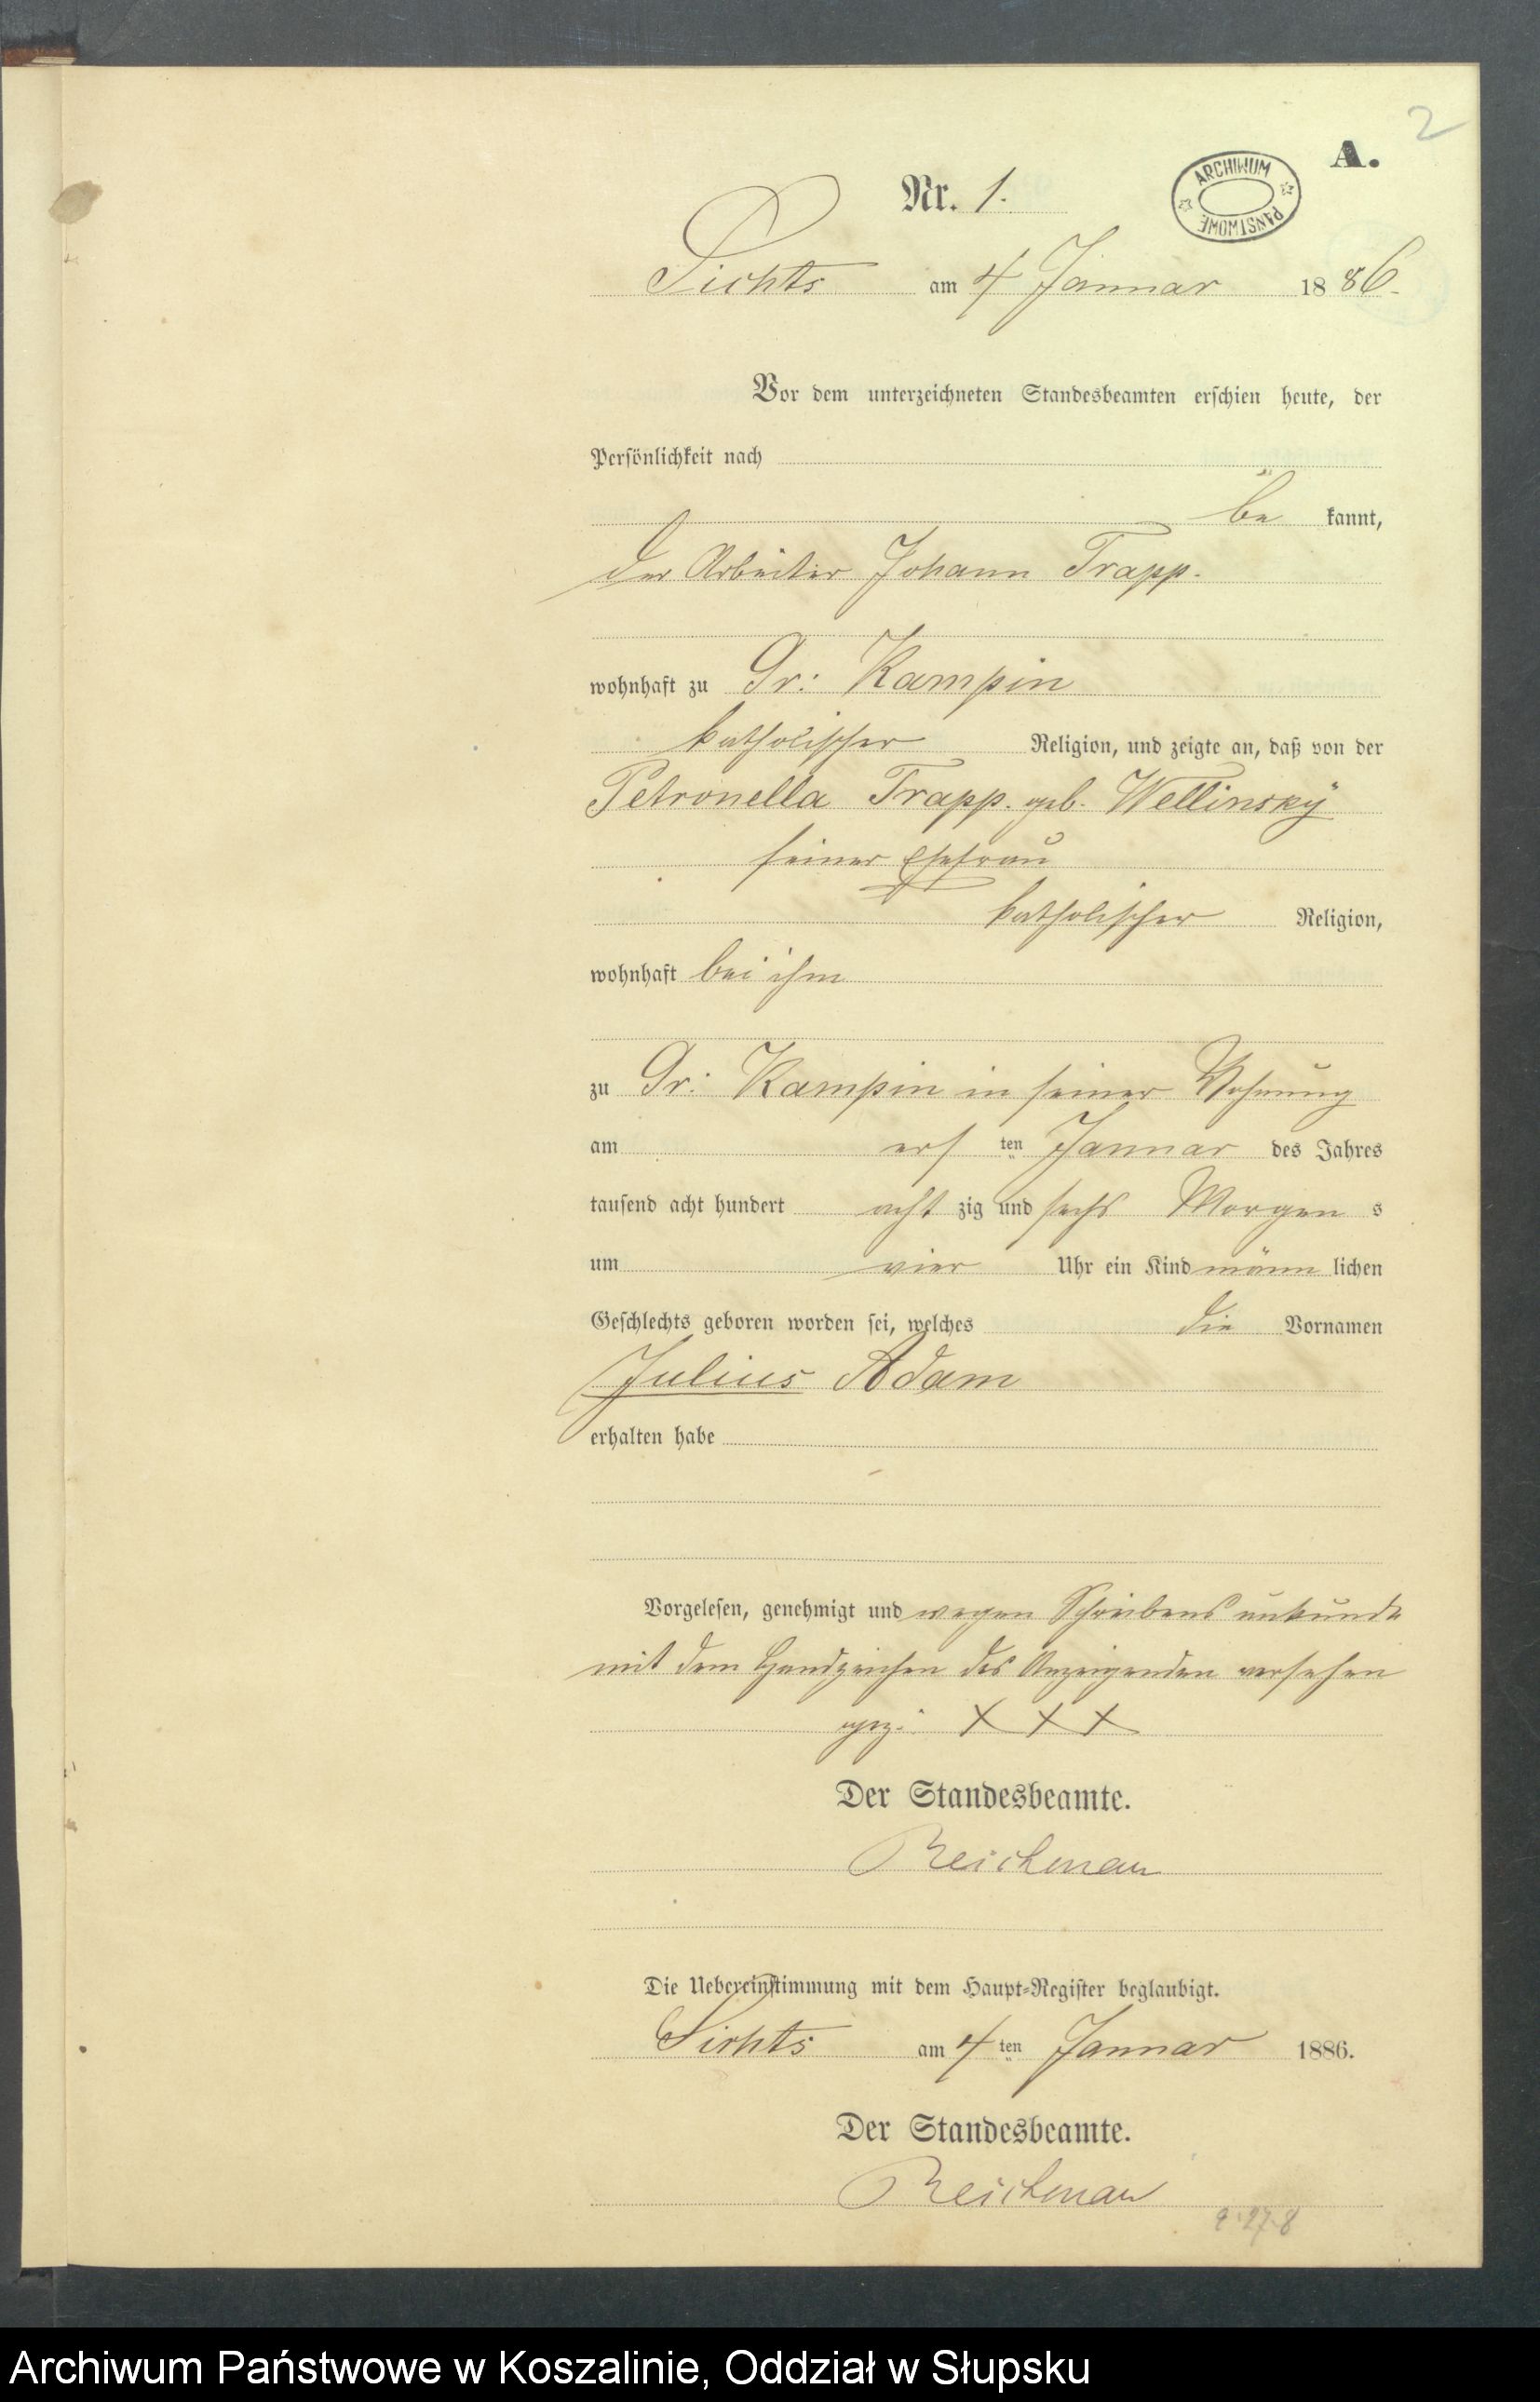 2
A.
Nr. 1.
ARCHIWUM PAŃSTWOWE
Sichts am 4 Januar 1886.
Vor dem unterzeichneten Standesbeamten erschien heute, der
Persönlichkeit nach
be kannt,
der Arbeiter Johann Trapp.
wohnhaft zu Gr: Kampin
katholischer Religion, und zeigte an, daß von der
Petronella Trapp. geb. Wellinsky
seiner Ehefrau
katholischer Religion,
wohnhaft bei ihm
zu Gr: Kampin in seiner Wohnung
am ers ten Januar des Jahres
tausend acht hundert acht zig und sechs Morgen s
um vier Uhr ein Kind männ lichen
Geschlechts geboren worden sei, welches die Vornamen
Julius Adam
erhalten habe
Vorgelesen, genehmigt und wegen Schreibens unkunde
mit dem Handzeichen des Anzeigenden versehen
gez: X X X
Der Standesbeamte.
Reichenau
Die Uebereinstimmung mit dem Haupt-Register beglaubigt.
Sichts am 4 ten Januar 1886.
Der Standesbeamte.
Reichenau
Archiwum Państwowe w Koszalinie, Oddział w Słupsku